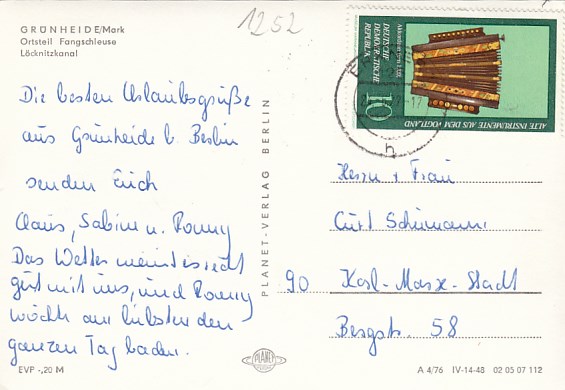 1252
GRÜNHEIDE/Mark
Ortsteil Fangschleuse
Löcknitzkanal
Die besten Urlaubsgrüße
aus Grünheide b. Berlin
senden Euch
Claus, Sabine u. Ronny
Das Wetter meint es recht
gut mit uns, und Ronny
möcht am liebsten den
ganzen Tag baden.
EVP -,20 M
PLANET-VERLAG BERLIN
PLANET
DEUTSCHE
DEMOKRATISCHE
REPUBLIK
10
ALTE INSTRUMENTE AUS DEM VOGTLAND
h
Herrn + Frau
Curt Schumann
90 Karl-Marx-Stadt
Bergstr. 58
A 4/76 IV-14-48 02 05 07 112